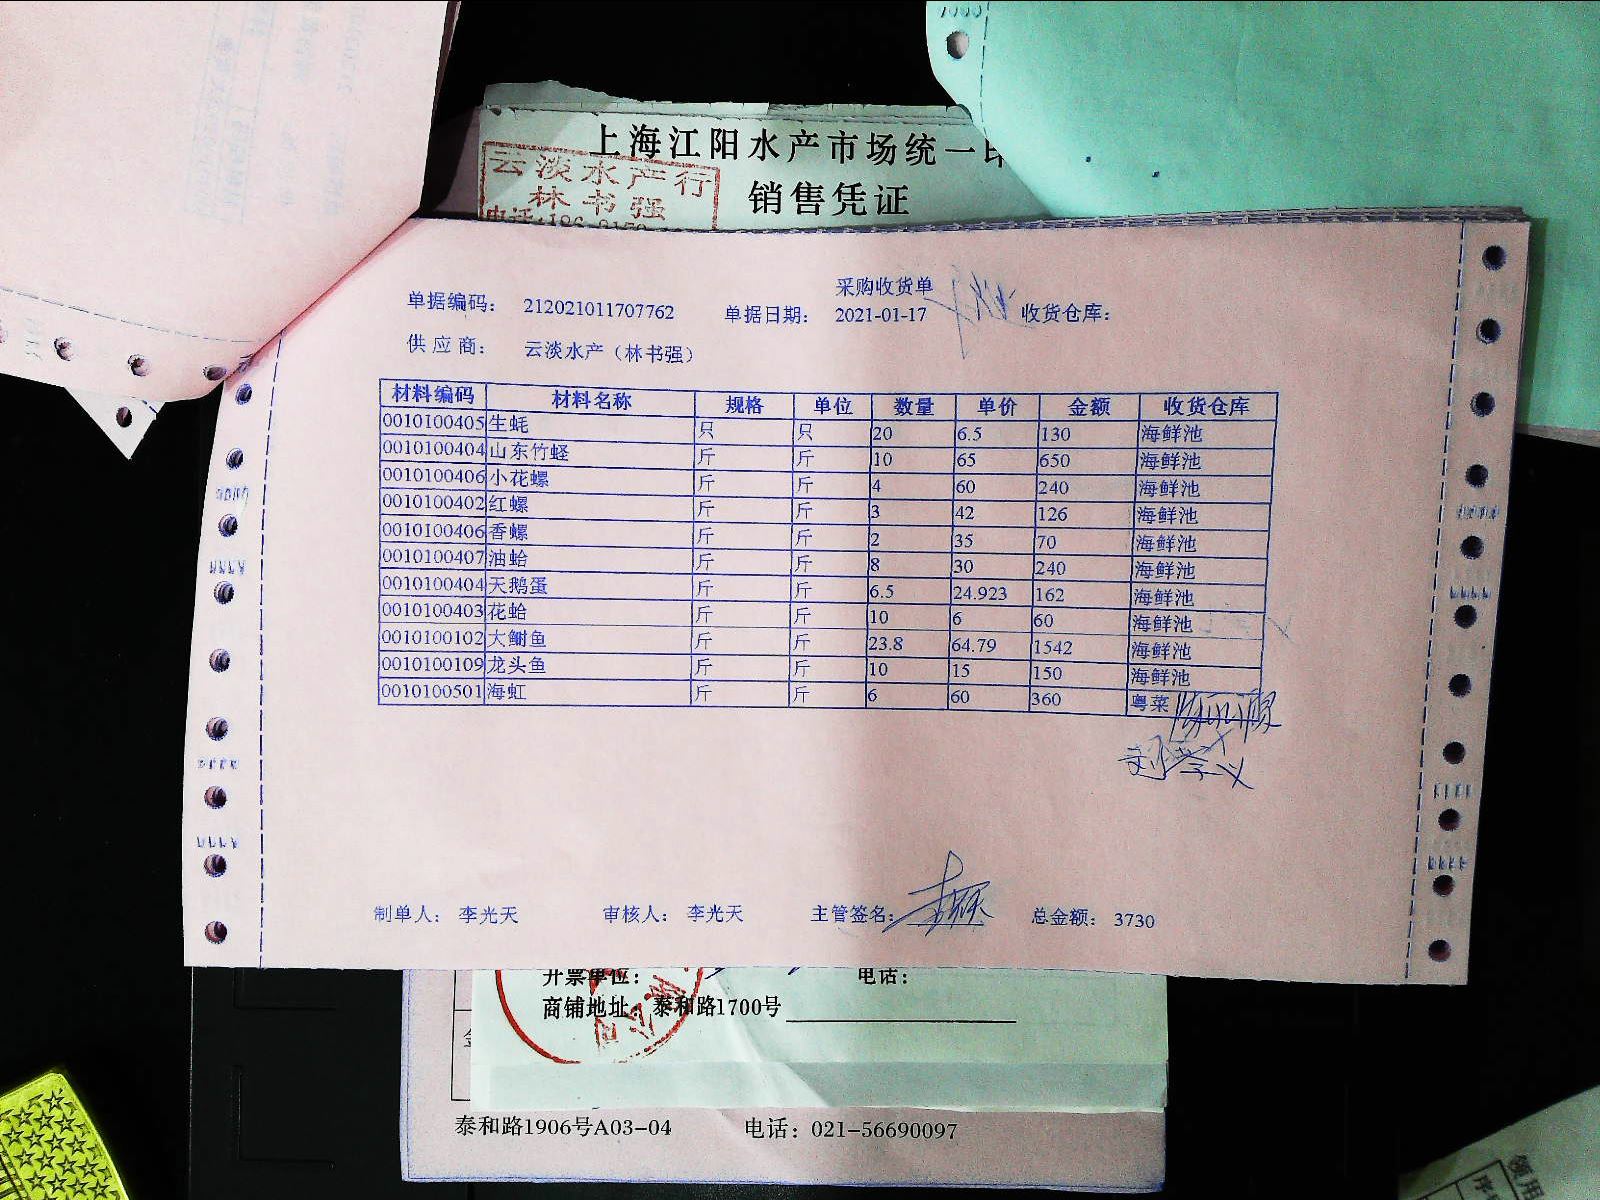 上海江阳水产市场统一
销售凭证
云淡水产行
林书强
采购收货单
单据编码： 212021011707762 单据日期： 2021-01-17 收货仓库：
供应商： 云淡水产（林书强）
材料编码 材料名称 规格 单位 数量 单价 金额 收货仓库
0010100405 生蚝 只 只 20 6.5 130 海鲜池
0010100404 山东竹蛏 斤 斤 10 65 650 海鲜池
0010100406 小花螺 斤 斤 4 60 240 海鲜池
0010100402 红螺 斤 斤 3 42 126 海鲜池
0010100406 香螺 斤 斤 2 35 70 海鲜池
0010100407 油蛤 斤 斤 8 30 240 海鲜池
0010100404 天鹅蛋 斤 斤 6.5 24.923 162 海鲜池
0010100403 花蛤 斤 斤 10 6 60 海鲜池
0010100102 大鲥鱼 斤 斤 23.8 64.79 1542 海鲜池
0010100109 龙头鱼 斤 斤 10 15 150 海鲜池
0010100501 海虹 斤 斤 6 60 360 粤菜
制单人： 李光天 审核人： 李光天 主管签名： 总金额： 3730
开票单位： 电话：
商铺地址：泰和路1700号
泰和路1906号A03-04 电话：021-56690097